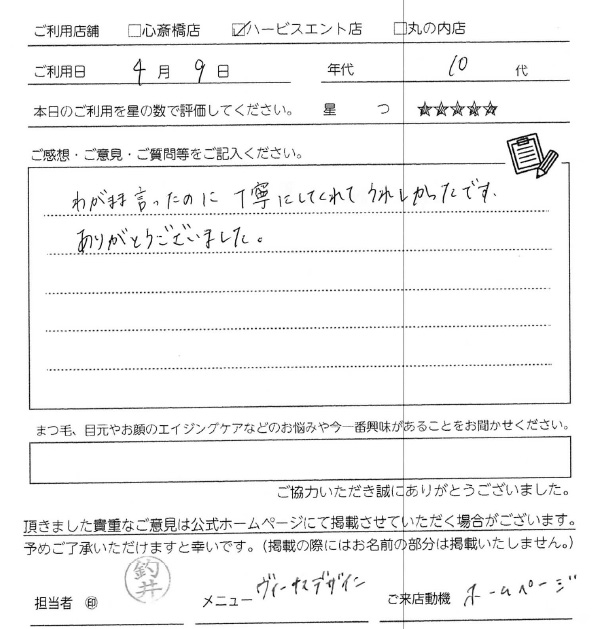 ご利用店舗 □心斎橋店 ☑ハービスエント店 □丸の内店
ご利用日 4月9日 年代 10代
本日のご利用を星の数で評価してください。 星 つ ★★★★★
ご感想・ご意見・ご質問等をご記入ください。
わがまま言ったのに丁寧にしてくれてうれしかったです.
ありがとうございました。
まつ毛、目元やお顔のエイジングケアなどのお悩みや今一番興味があることをお聞かせください。
ご協力いただき誠にありがとうございました。
頂きました貴重なご意見は公式ホームページにて掲載させていただく場合がございます。
予めご了承いただけますと幸いです。(掲載の際にはお名前の部分は掲載いたしません。)
担当者 ㊞ 釣井 メニュー ヴィーナスデザイン ご来店動機 ホームページ